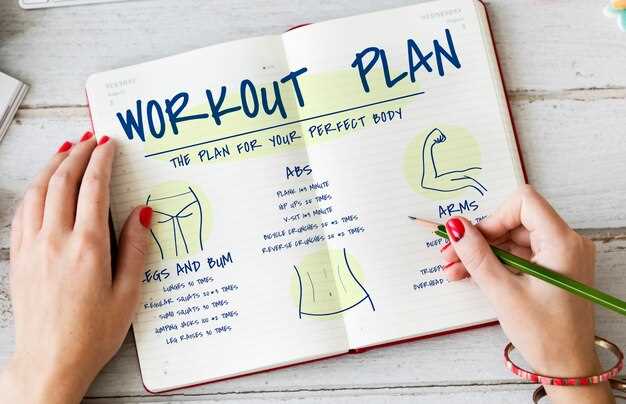 TUESDAY
August
WEDNESDAY
August
WORKOUT PLAN
THE PLAN FOR YOUR PERFECT BODY
LEGS AND BUM
LUNGES 30 TIMES
REGULAR SQUATS 20*3 TIMES
SUMO SQUATS 30 TIMES
JUMPING JACKS 100*2 TIMES
LEG RAISES 30 TIMES
ABS
PLANK 1*3 MINUTE
HIP UPS 20 TIMES
V-SIT 1*3 MINUTE
BICYCLE CRUNCHES 20*2 TIMES
REVERSE CRUNCHES 30 TIMES
ARMS
BICEP
TRICEPS
OVERHEAD